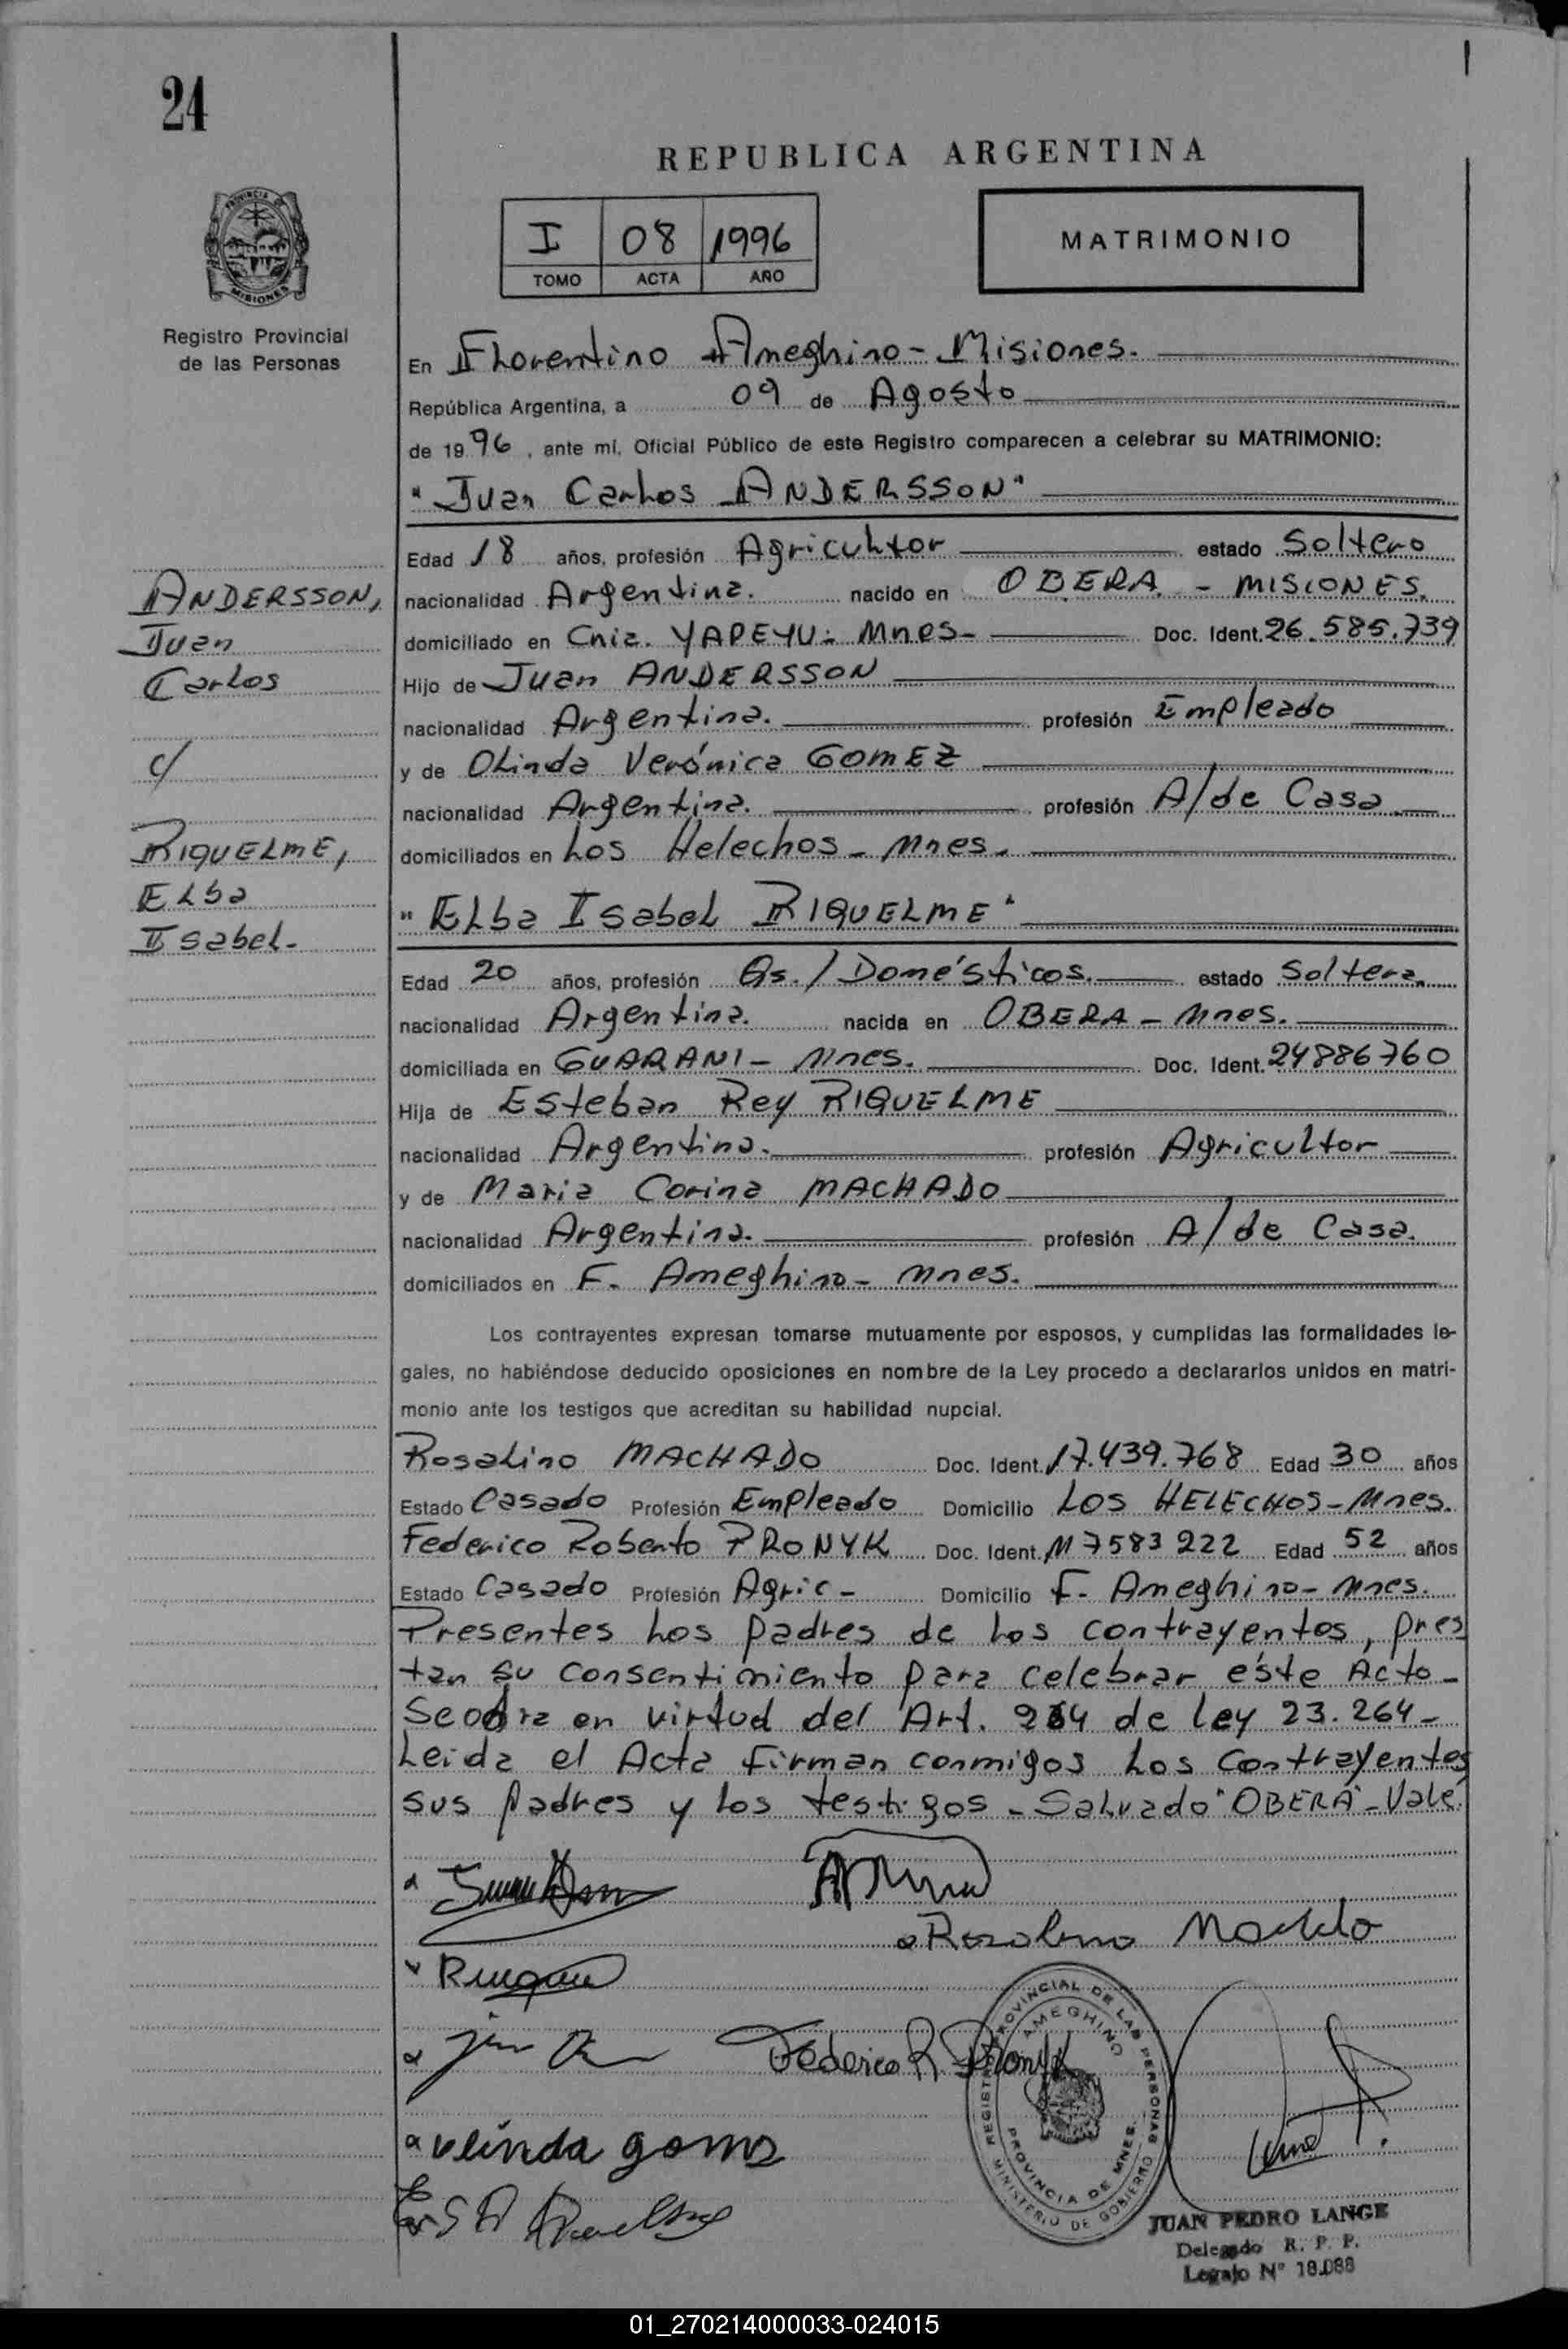 24
REPUBLICA ARGENTINA
PROVINCIA DE
MISIONES
Registro Provincial
de las Personas
I 08 1996
TOMO ACTA AÑO
MATRIMONIO
En Florentino Ameghino - Misiones.
República Argentina, a 09 de Agosto
de 1996, ante mí, Oficial Público de este Registro comparecen a celebrar su MATRIMONIO:
"Juan Carlos ANDERSSON"
Edad 18 años, profesión Agricultor estado Soltero
nacionalidad Argentina. nacido en OBERA - MISIONES.
domiciliado en Cnia. YAPEYU - Mnes - Doc. Ident. 26.585.739
Hijo de Juan ANDERSSON
nacionalidad Argentina. profesión Empleado
y de Olinda Verónica GOMEZ
nacionalidad Argentina. profesión A/de Casa.
domiciliados en Los Helechos - Mnes.
"Elba Isabel RIQUELME"
Edad 20 años, profesión Qs./Domésticos. estado Soltera.
nacionalidad Argentina. nacida en OBERA - Mnes.
domiciliada en GUARANI - Mnes. Doc. Ident. 24886760
Hija de Esteban Rey RIQUELME
nacionalidad Argentina. profesión Agricultor
y de Maria Corina MACHADO
nacionalidad Argentina. profesión A/de Casa.
domiciliados en F. Ameghino - Mnes.
ANDERSSON,
Juan
Carlos
c/
RIQUELME,
Elba
Isabel-
Los contrayentes expresan tomarse mutuamente por esposos, y cumplidas las formalidades le-
gales, no habiéndose deducido oposiciones en nombre de la Ley procedo a declararlos unidos en matri-
monio ante los testigos que acreditan su habilidad nupcial.
Rosalino MACHADO Doc. Ident. 17.439.768 Edad 30 años
Estado Casado Profesión Empleado Domicilio LOS HELECHOS - Mnes.
Federico Roberto PRONYK Doc. Ident. M 7583 222 Edad 52 años
Estado Casado Profesión Agric - Domicilio F. Ameghino - Mnes.
Presentes los padres de los contrayentes, pres
tan su consentimiento para celebrar éste Acto-
en virtud del Art. 264 de ley 23.264-
Leida el Acta firman conmigos los contrayentes
sus padres y los testigos - Salvado "OBERA" - Vale.
Federico R Pronyk
REGISTRO PROVINCIAL DE LAS PERSONAS
AMEGHINO
PROVINCIA DE MNES.
MINISTERIO DE GOBIERNO
JUAN PEDRO LANGE
Delegado R. P. P.
Legajo N° 18.088
01_270214000033-024015